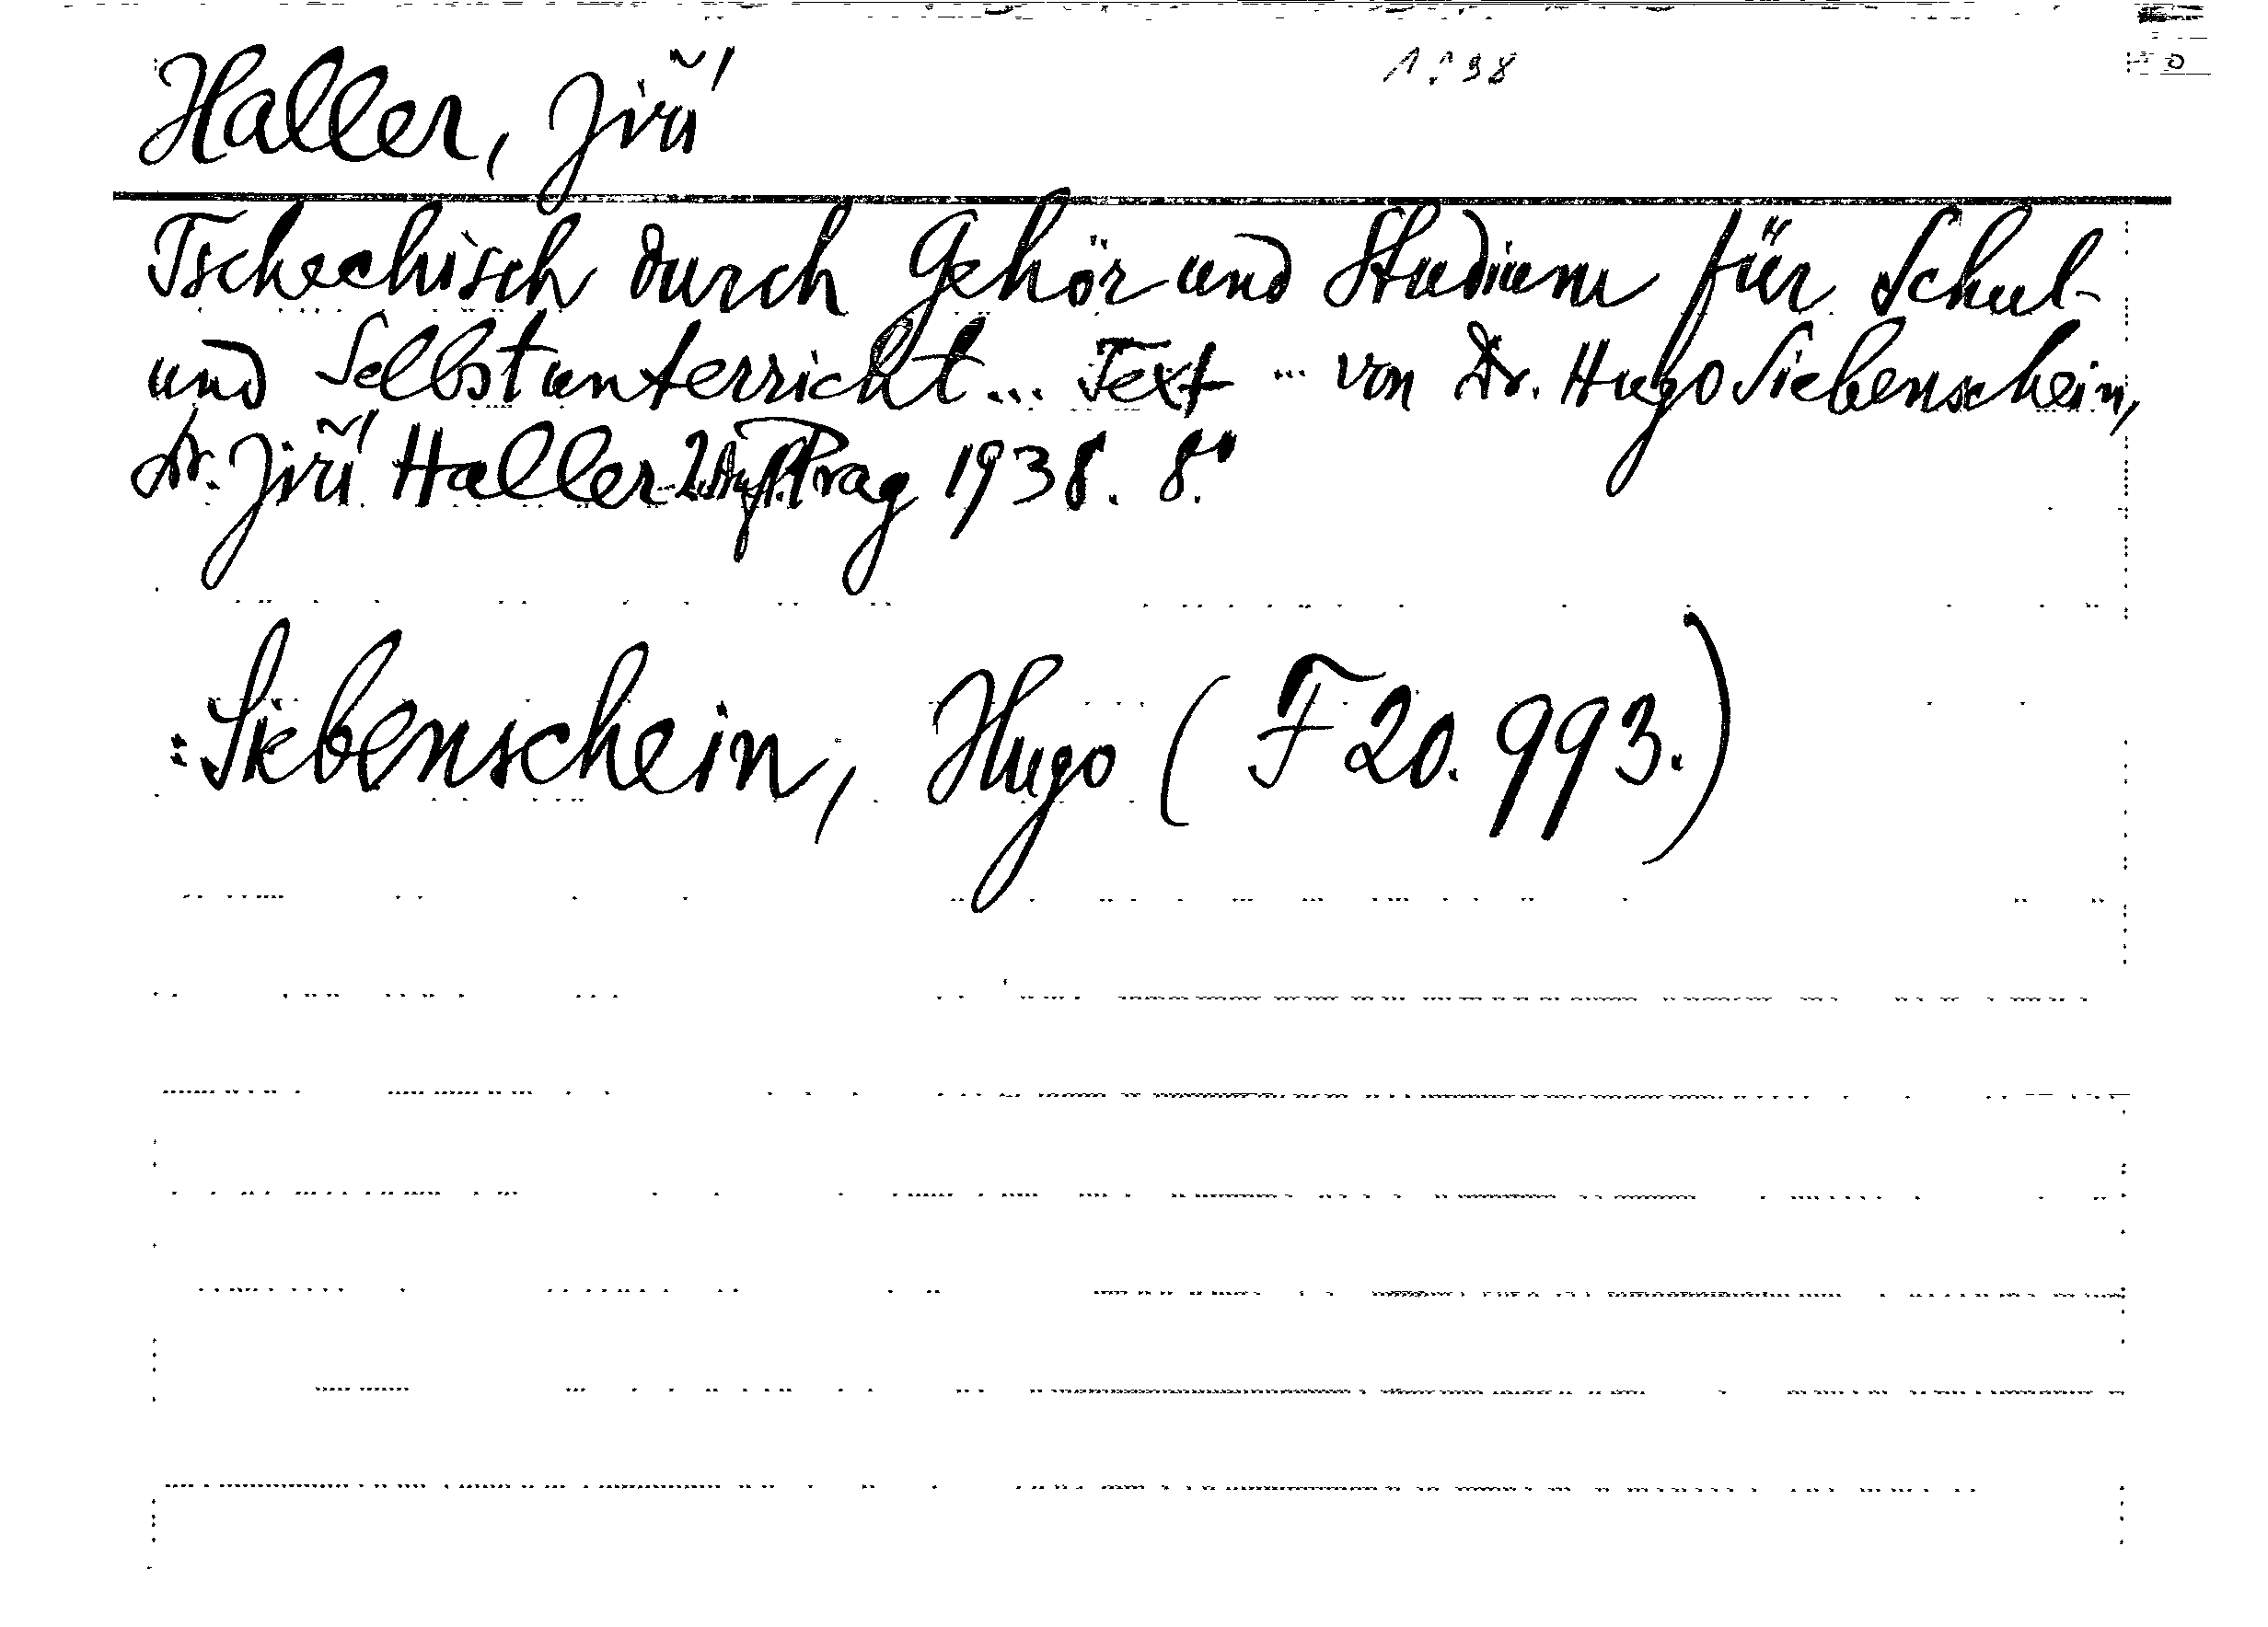 Haller, Jiří
Tschechisch durch Gehör und Studium für Schul-
und Selbstunterricht... Text ... von Dr. Hugo Siebenschein,
Dr. Jiří Haller 2. Aufl. Prag 1938. 8°.
: Siebenschein, Hugo (F 20.993.)